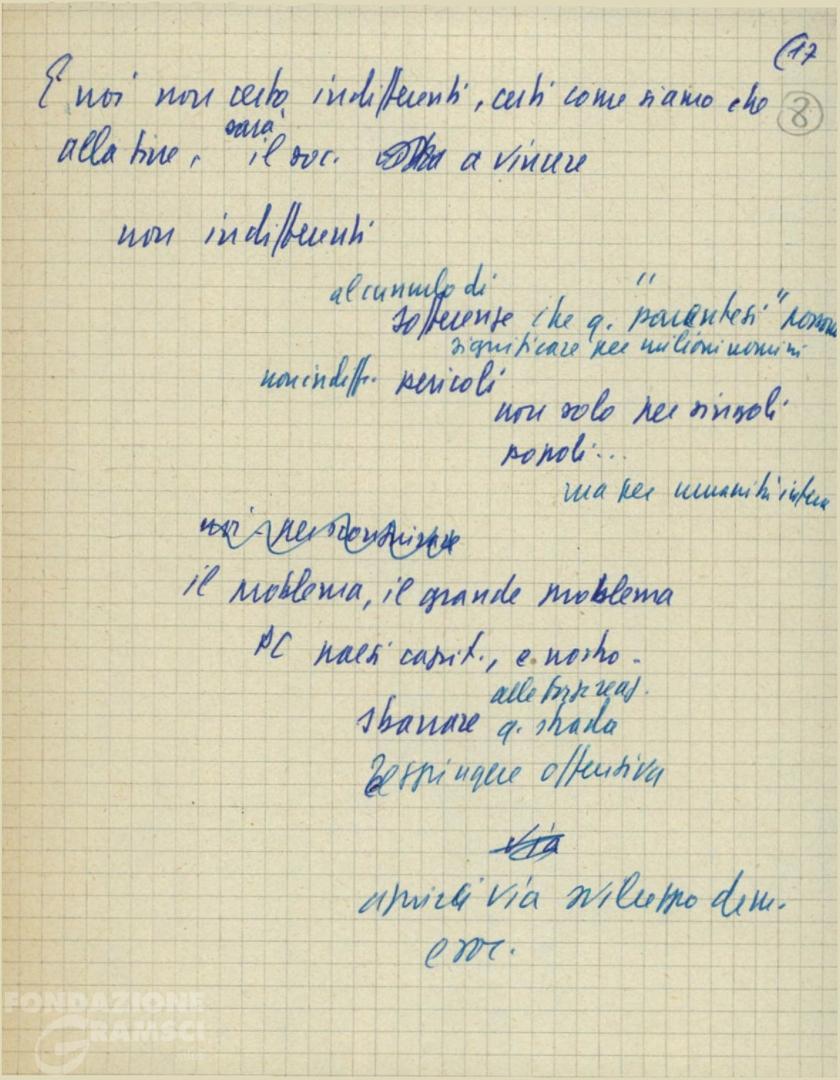 (17
E noi non certo indifferenti, certi come siamo che
8
alla fine, sarà il soc. a vincere
non indifferenti
al cumulo di
sofferenze che q. "parentesi" possono
significare per milioni uomini
non indiff. pericoli
non solo per singoli
popoli...
ma per umanità intera
noi per scongiurare
il problema, il grande problema
PC paesi capit., e nostro -
alle forze reaz.
sbarrare q. strada
Respingere offensiva
via
aprirci via sviluppo dem.
e soc.
FONDAZIONE
GRAMSCI